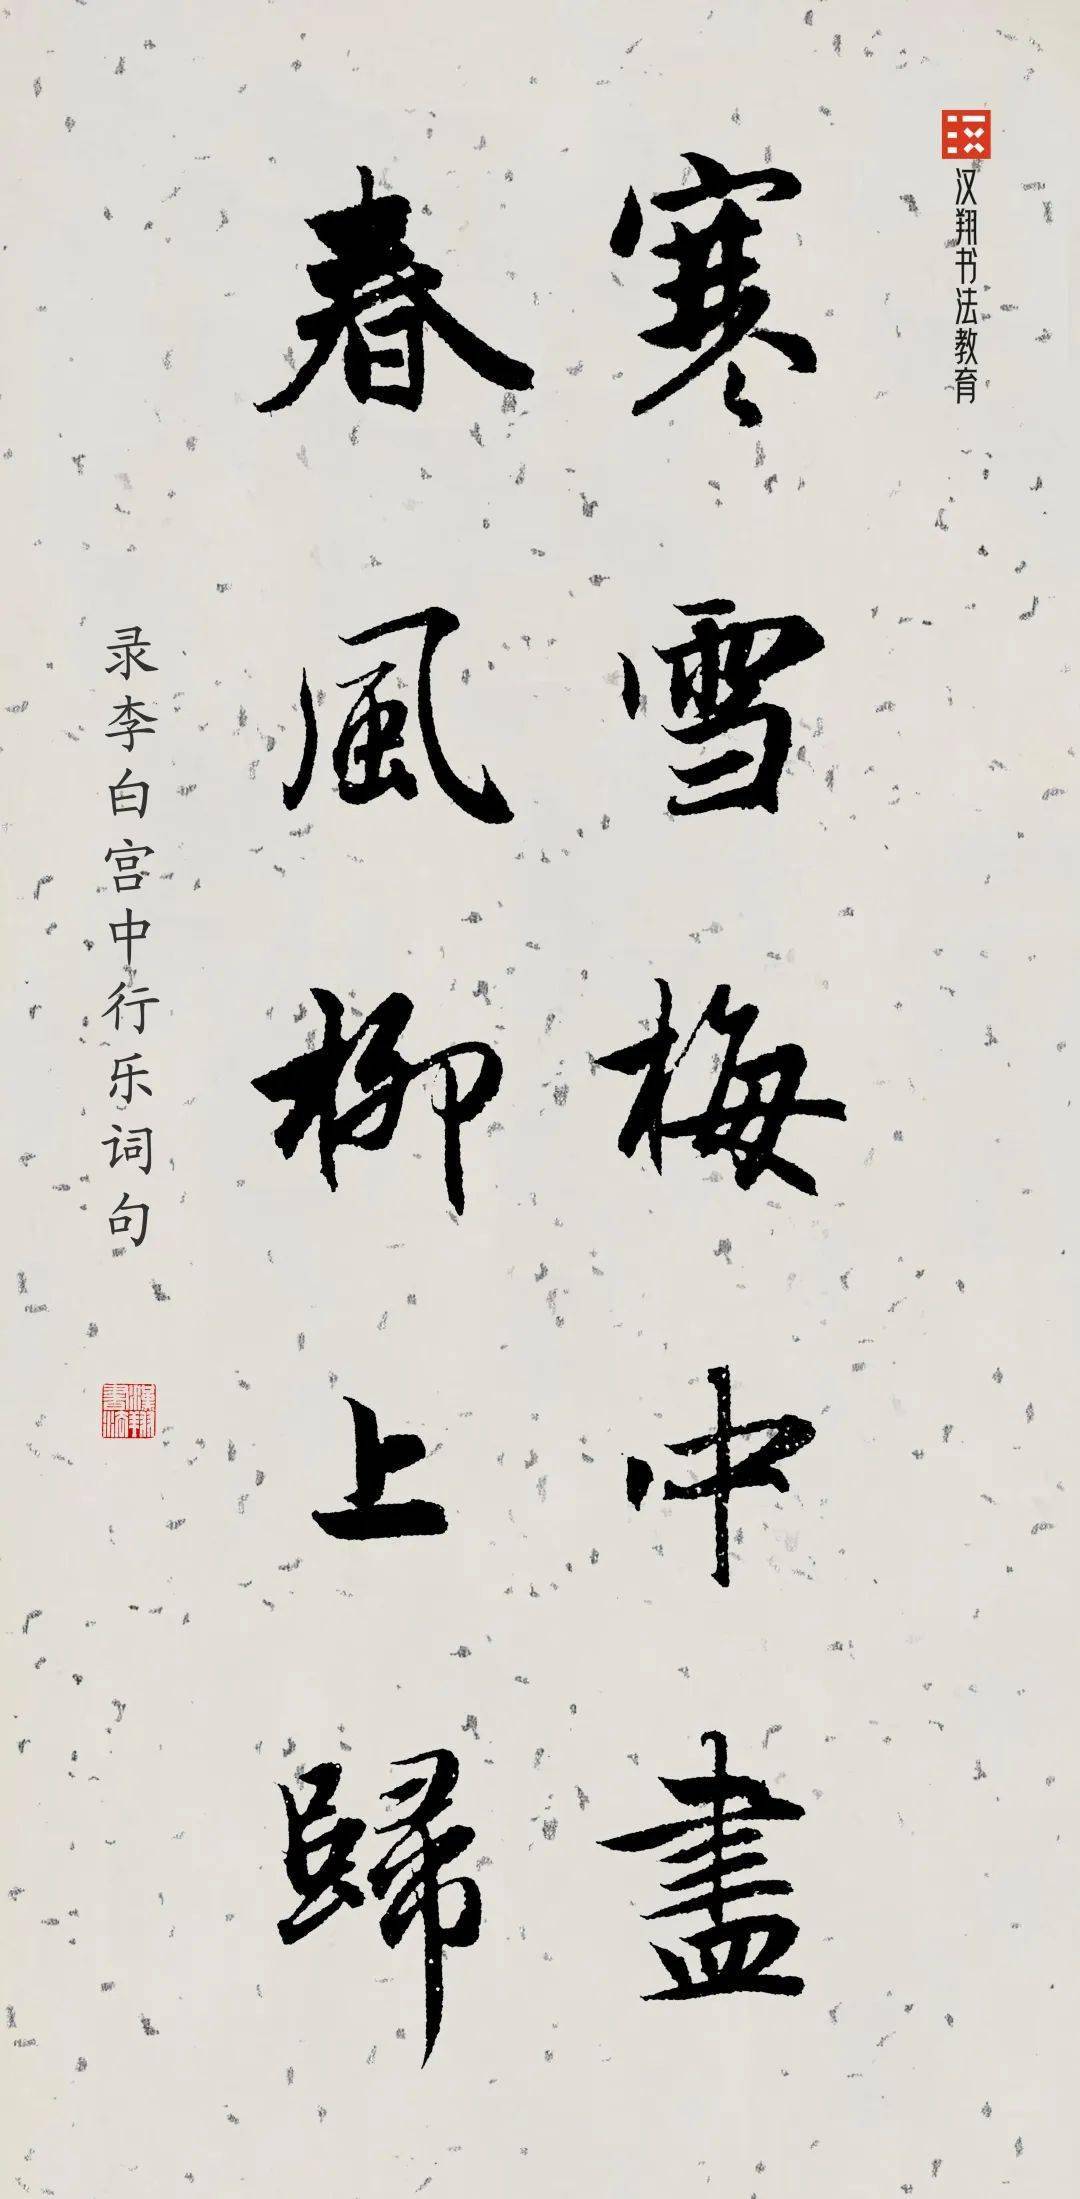 汉翔书法教育
寒雪梅中盡
春風柳上歸
录李白宫中行乐词句
漢翔書法